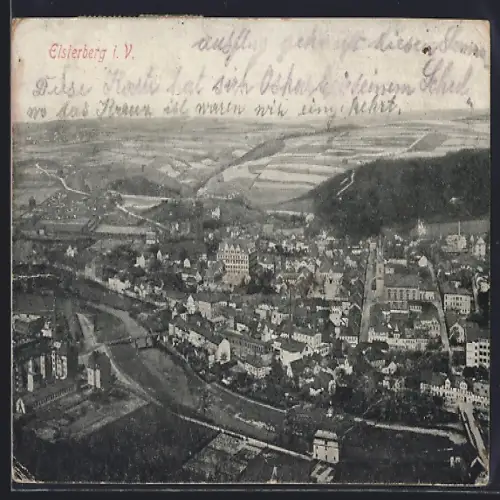 Elsterberg i. V.
Ausflug gehangs diesen
Diese Karte hat sich Oskar deinem
wo das Kreuz ist waren wir eingekehrt.